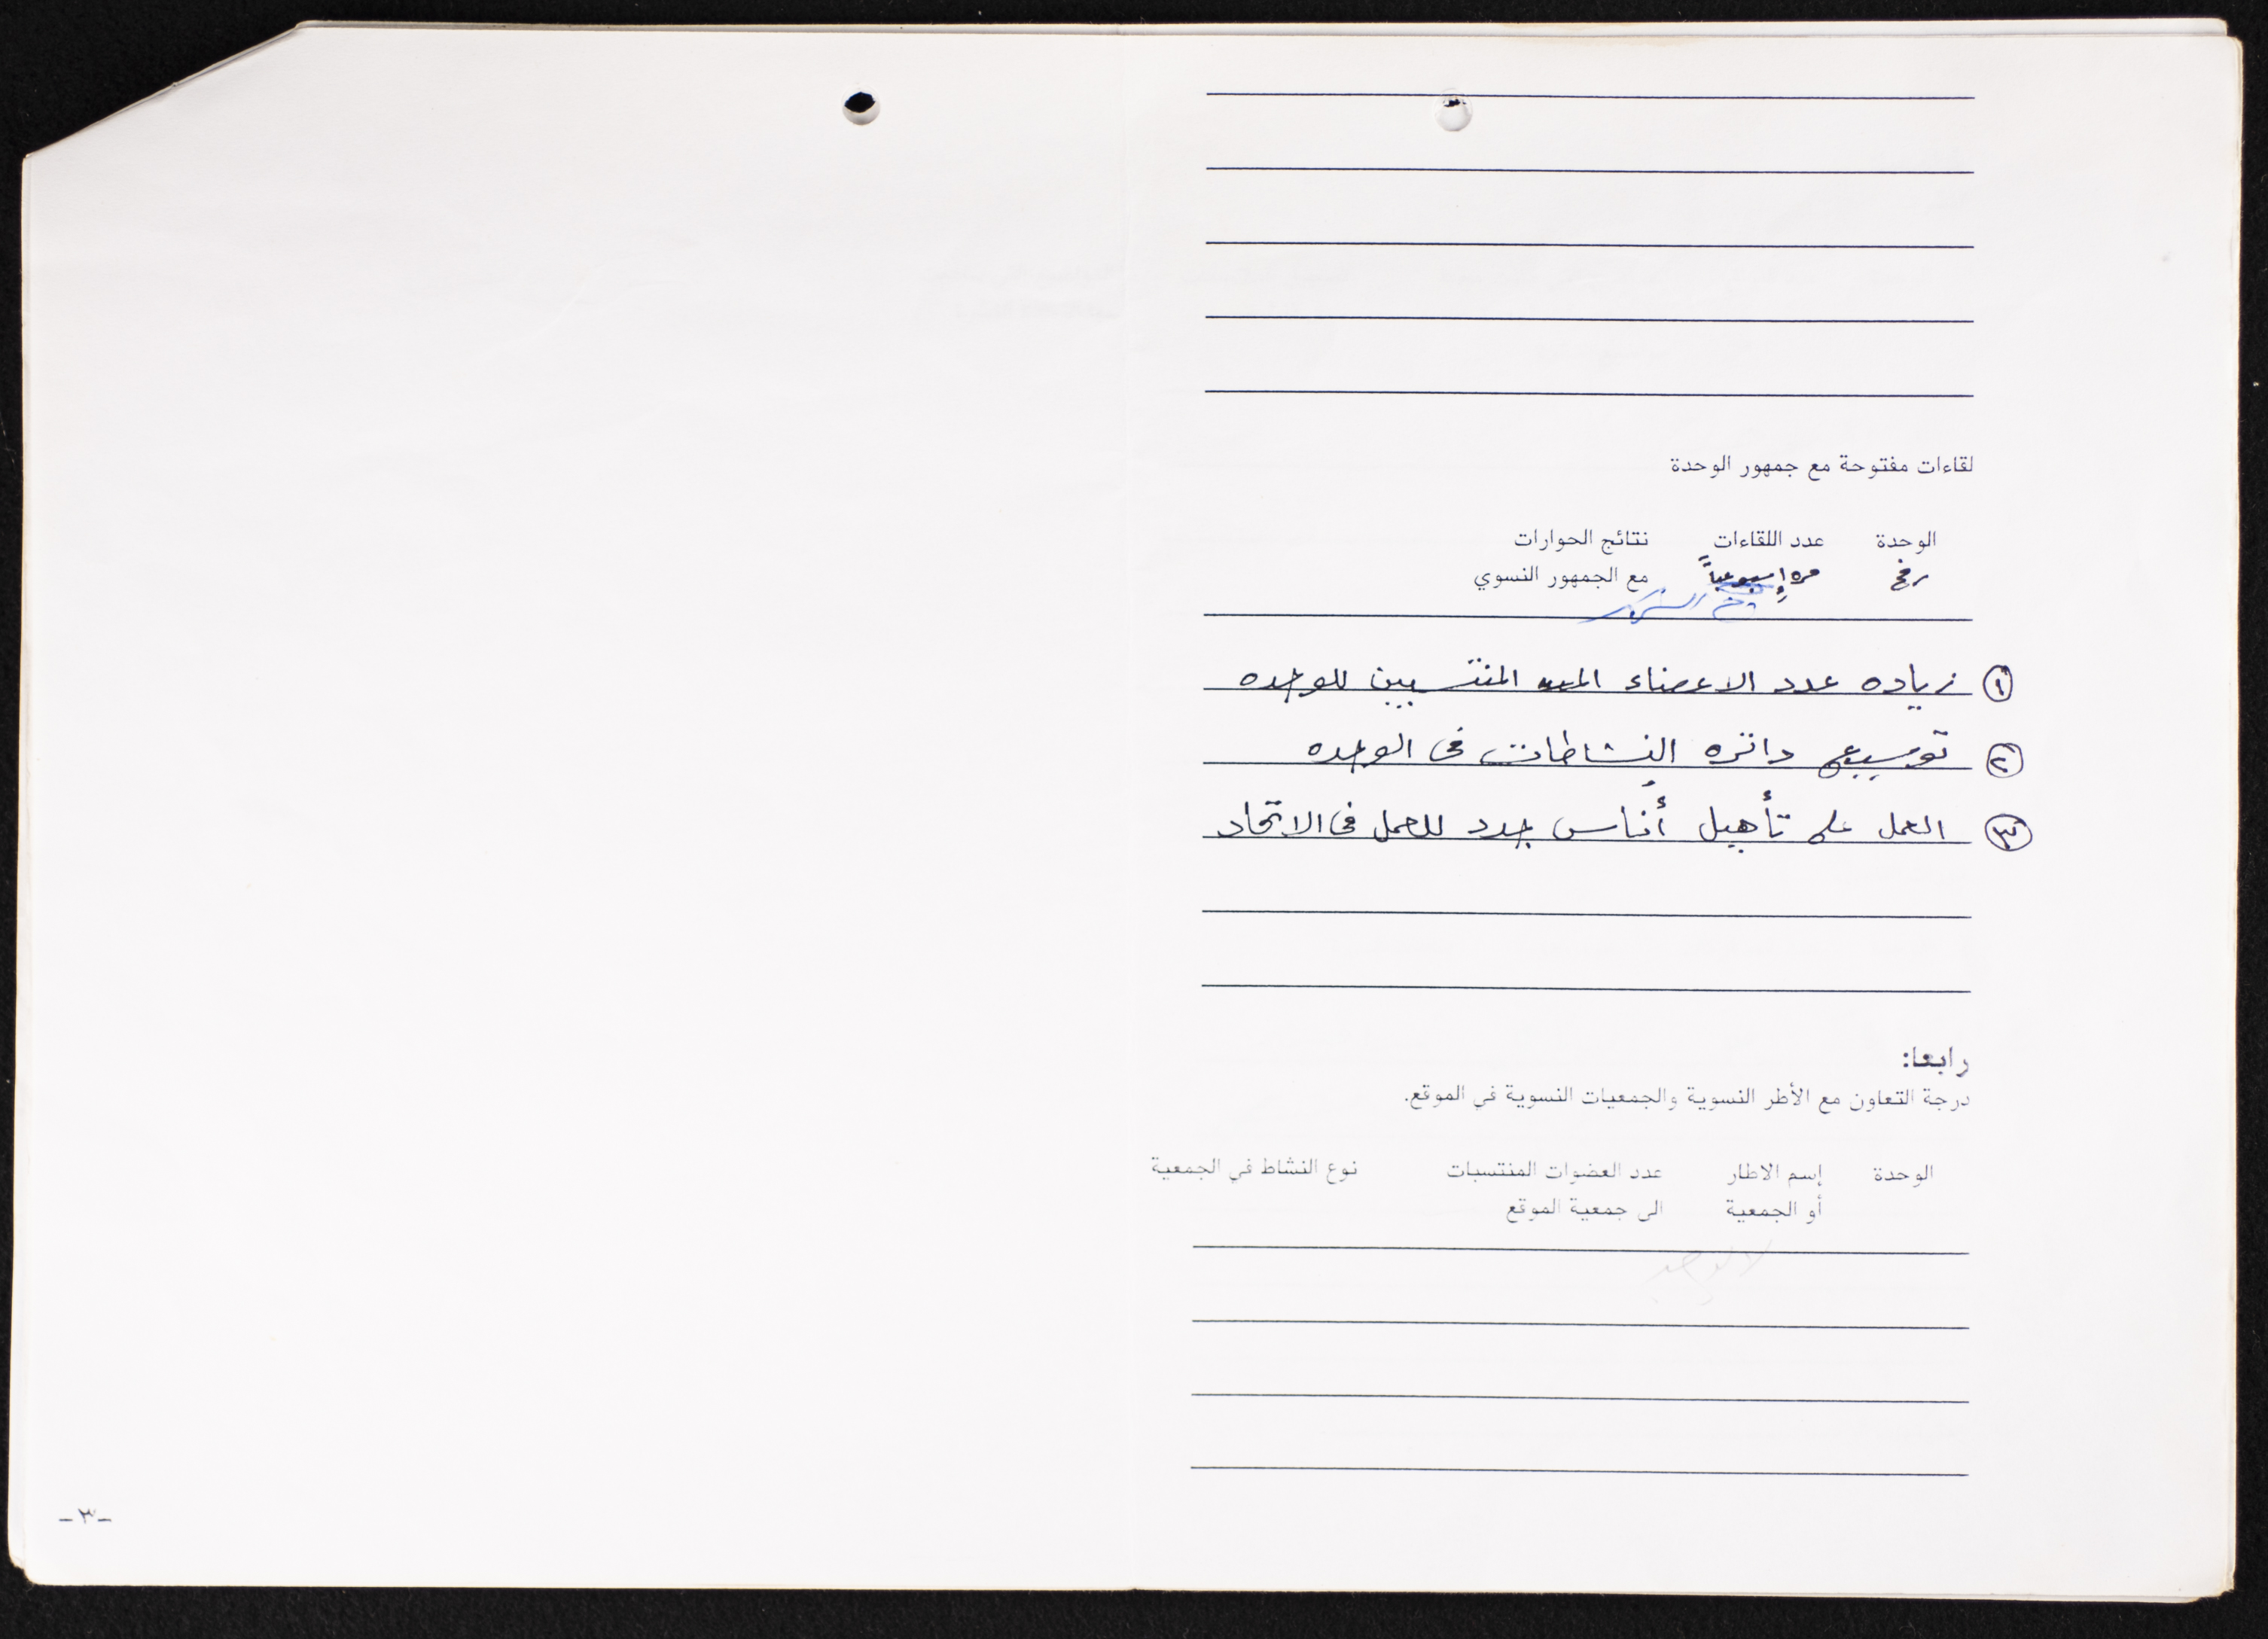 لقاءات مفتوحة مع جمهور الوحدة
الوحدة عدد اللقاءات نتائج الحوارات
رفح مره إسبوعياً مع الجمهور النسوي
١ زياده عدد الاعضاء المنتسبين للوحده
٢ توسيع دائره النشاطات فى الوحده
٣ العمل على تأهيل أناس جدد للعمل فى الاتحاد
رابعا:
درجة التعاون مع الأطر النسوية والجمعيات النسوية في الموقع.
الوحدة إسم الاطار عدد العضوات المنتسبات نوع النشاط في الجمعية
أو الجمعية الى جمعية الموقع
لا يوجد
-٣-